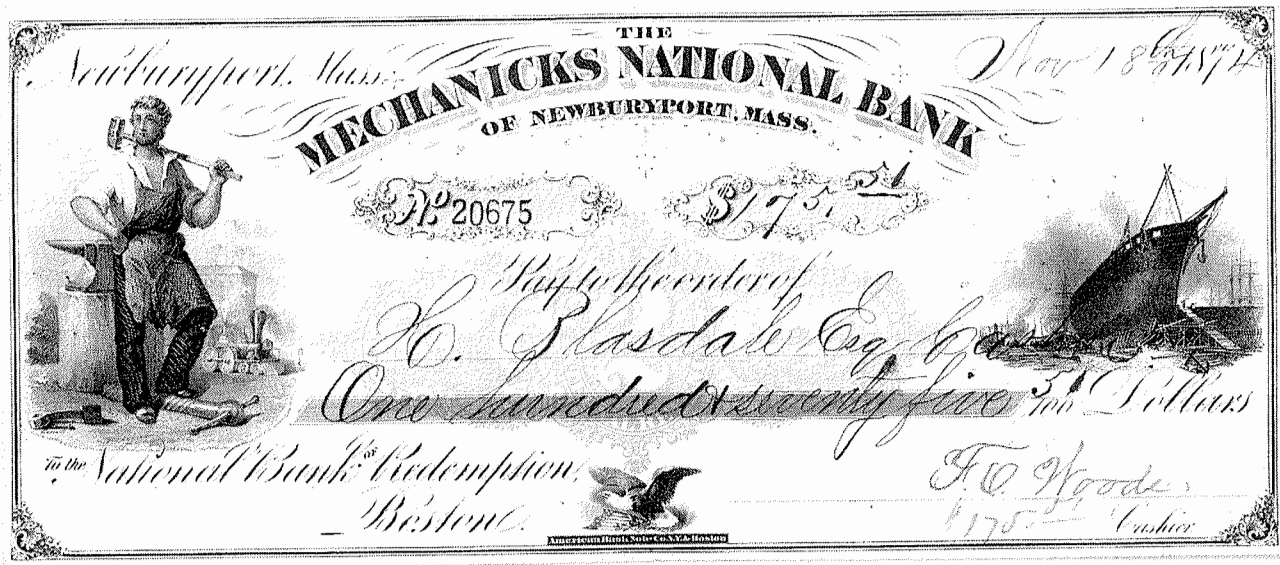 THE
Newburyport, Mass. Nov 18th 1874
MECHANICKS NATIONAL BANK
OF NEWBURYPORT, MASS.
No 20675 $175.51
Pay to the order of
H. Blasdale Esq
One hundred & seventy five 51/100 Dollars
To the National Bank of Redemption,
Boston.
F. O. Woods
Cashier
American Bank Note Co. N.Y. & Boston